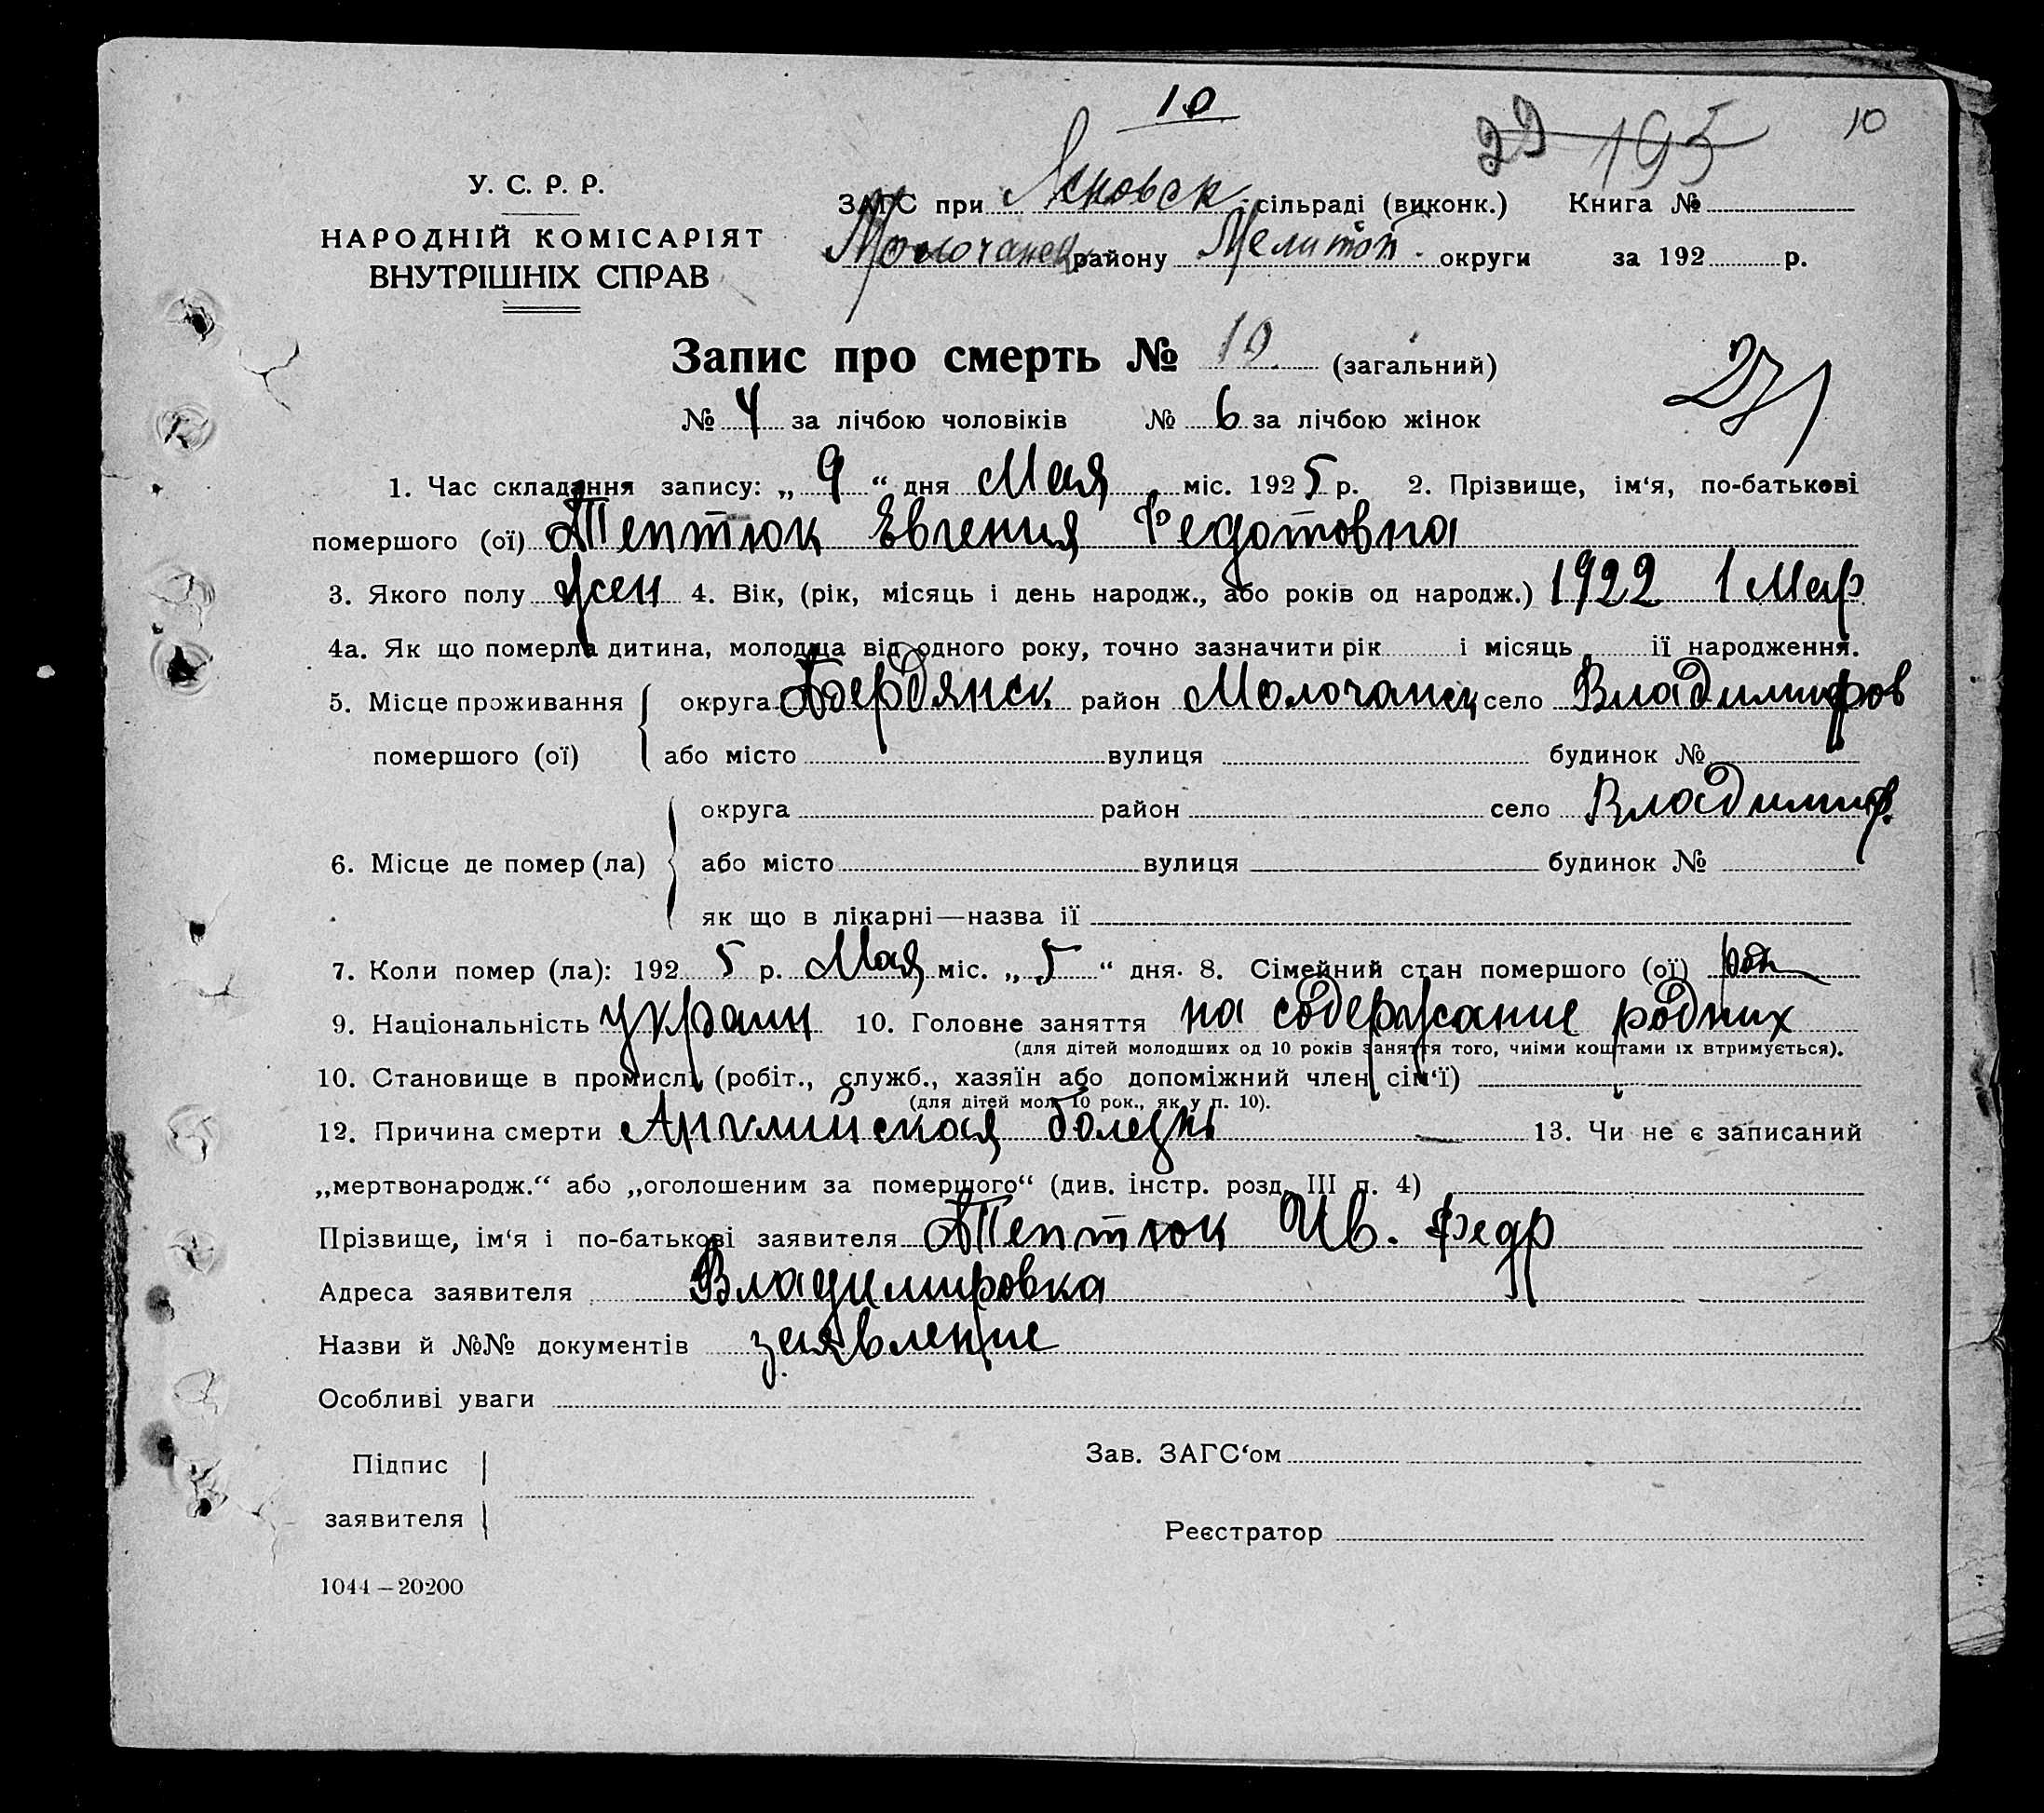 10
29 195 10
У. С. Р. Р.
НАРОДНІЙ КОМІСАРІЯТ
ВНУТРІШНІХ СПРАВ
ЗАГС при Ясновск сільраді (виконк.) Книга №
Молочанск району Мелитоп. округи за 192 р.
Запис про смерть № 10 (загальний)
271
№ 4 за лічбою чоловіків № 6 за лічбою жінок
1. Час складання запису: „ 9 “ дня Мая міс. 1925 р. 2. Прізвище, ім‘я, по-батькові
помершого (ої) Тептюк Евгения Федотовна
3. Якого полу жен 4. Вік, (рік, місяць і день народж., або років од народж.) 1922 1 Мар
4а. Як що померла дитина, молодша від одного року, точно зазначити рік і місяць її народження.
5. Місце проживання округа Бердянск район Молочанск село Владимиров
помершого (ої) або місто вулиця будинок №
округа район село Владимир.
6. Місце де помер (ла) або місто вулиця будинок №
як що в лікарні—назва її
7. Коли помер (ла): 192 5 р. Мая міс. „ 5 “ дня. 8. Сімейний стан помершого (ої)
9. Національність украин 10. Головне заняття на содержание родних
(для дітей молодших од 10 років заняття того, чиїми коштами їх втримується).
10. Становище в промислі, (робіт., служб., хазяїн або допоміжний член сім‘ї)
(для дітей мол. 10 рок., як у п. 10).
12. Причина смерти Английская болезнь 13. Чи не є записаний
„мертвонародж.“ або „оголошеним за помершого“ (див. інстр. розд. III п. 4)
Прізвище, ім‘я і по-батькові заявителя Тептюк Ив. Федр
Адреса заявителя Владимировка
Назви й №№ документів заявление
Особливі уваги
Підпис
заявителя
Зав. ЗАГС‘ом
Реєстратор
1044—20200